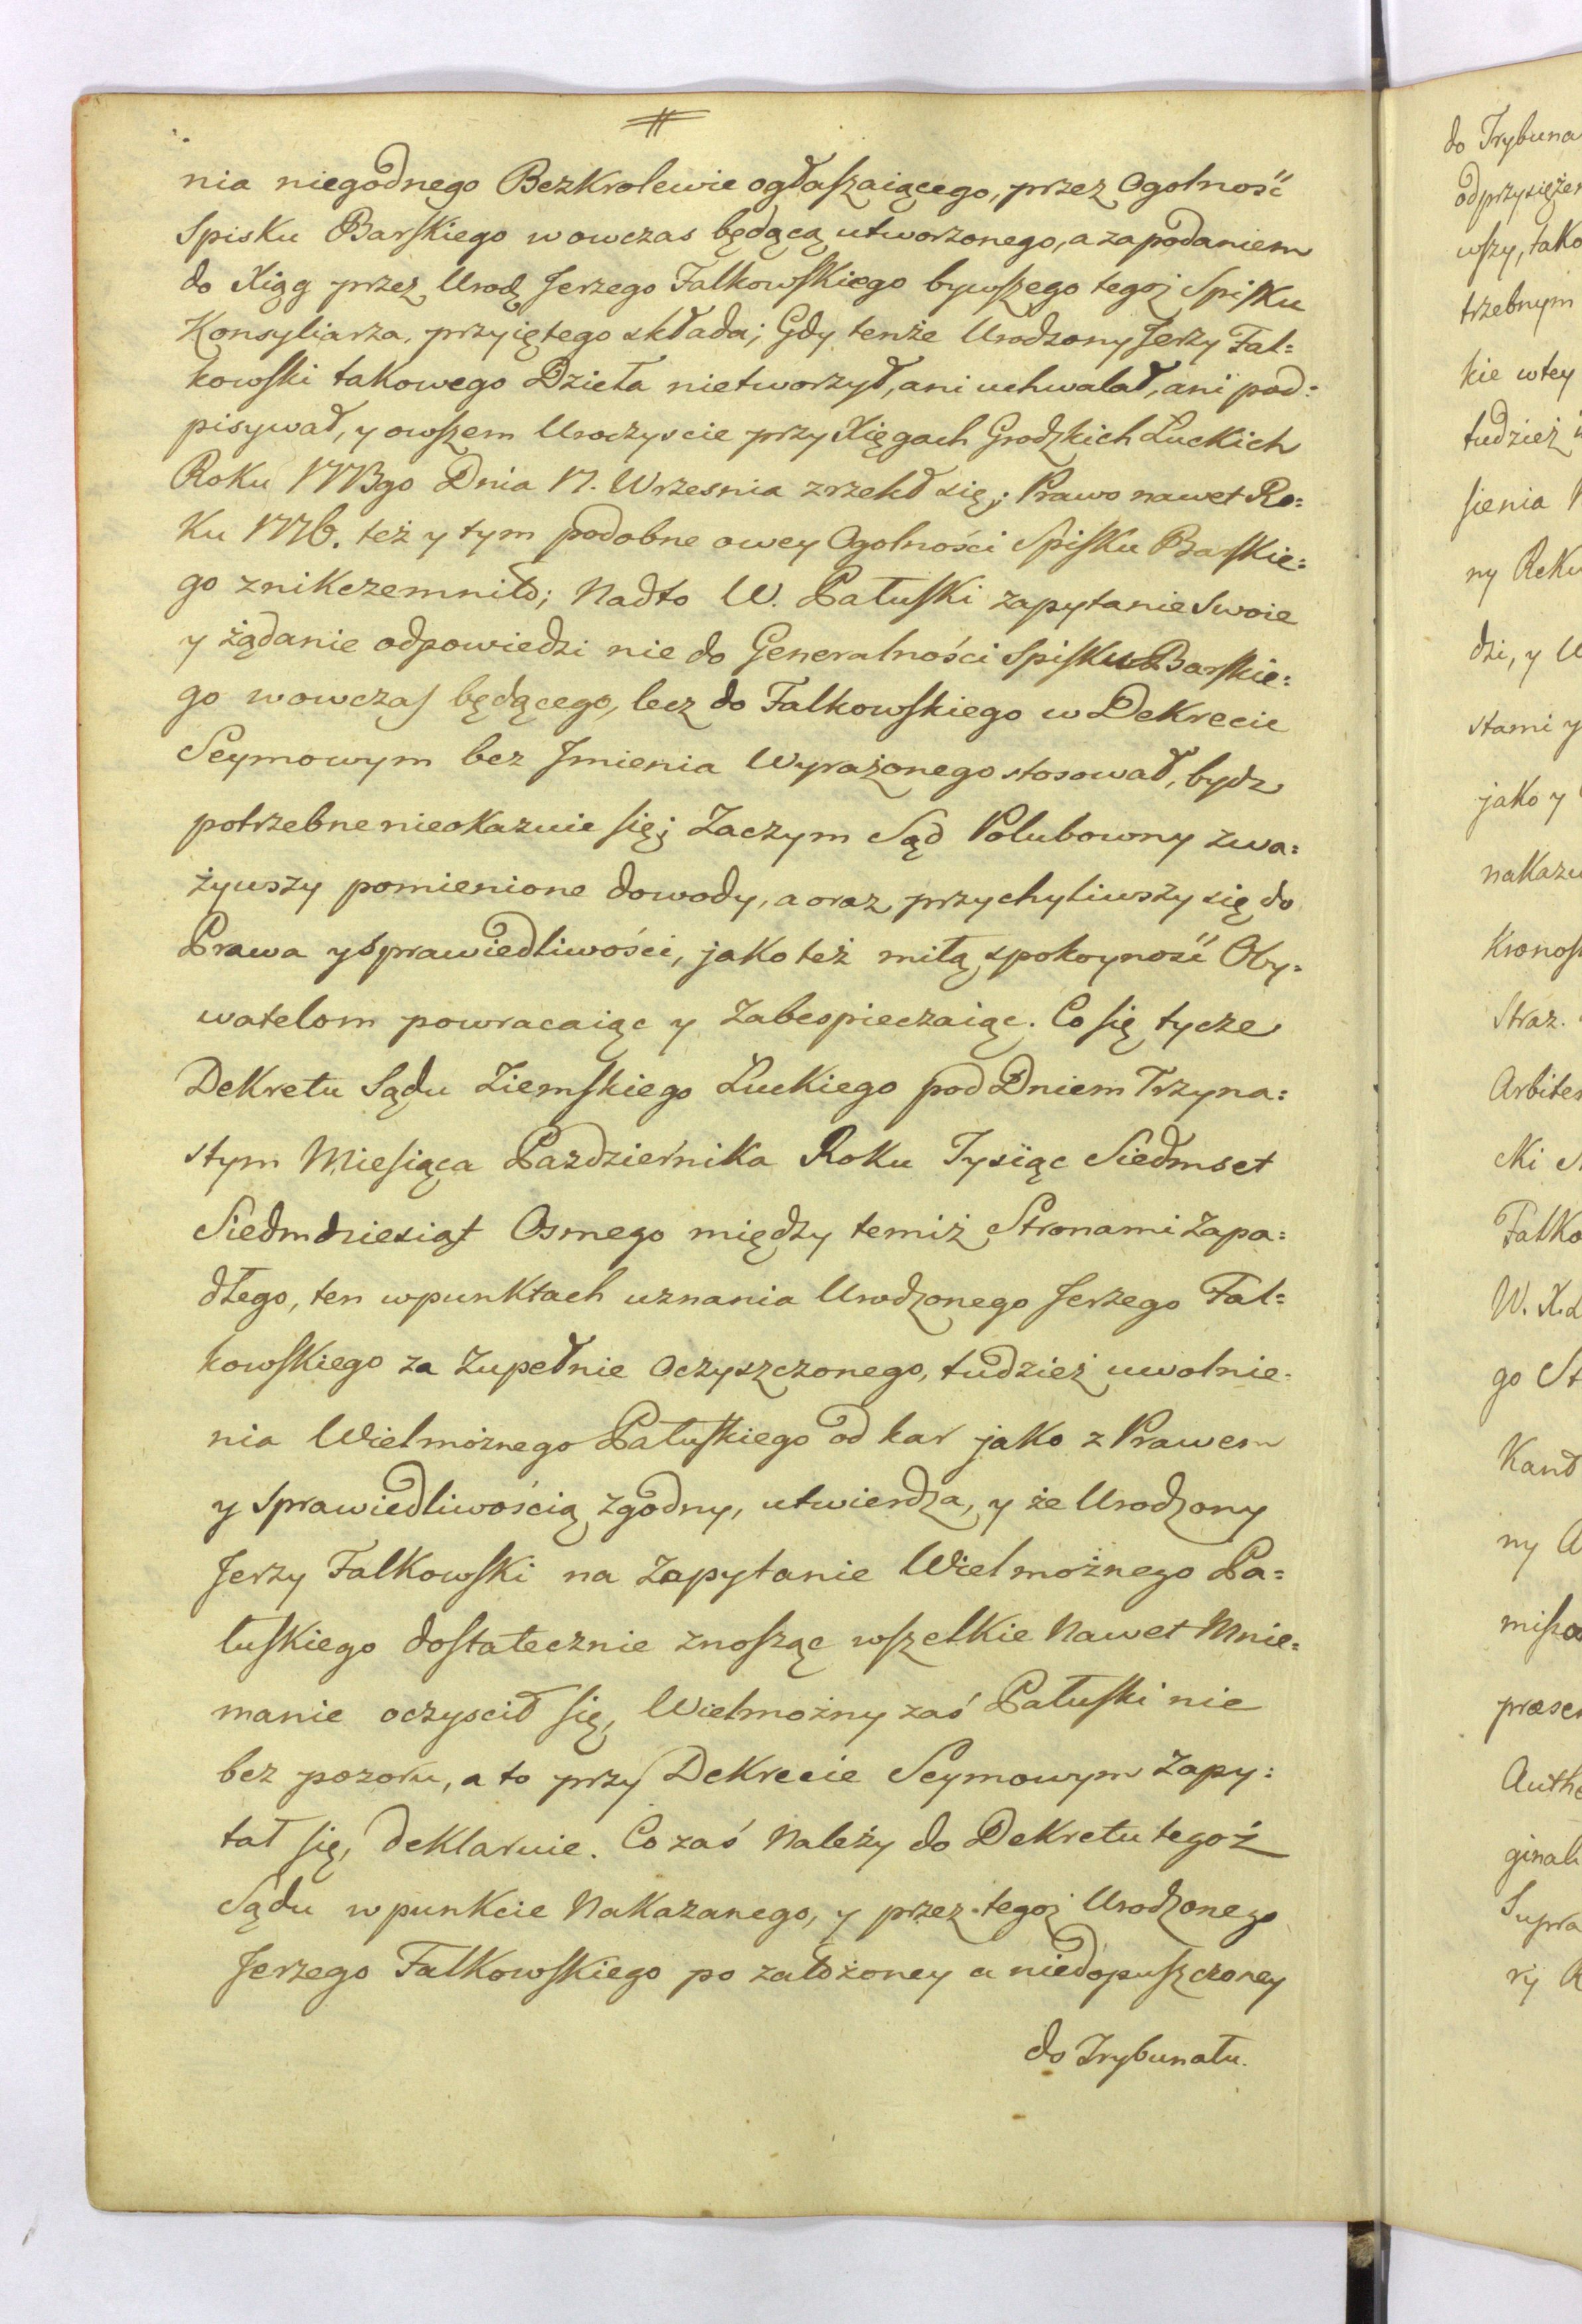 nia niegodnego Bezkrolewie ogłaszaiącego, przez Ogolność
Spisku Barskiego wowczas będącą utworzonego, a zapodaniem
do Xiąg przez Urodz Jerzego Falkowskiego bywszego tegoż Spisku
Konsyliarza, przyiętego składa; Gdy tenże Urodzony Jerzy Fal=
kowski takowego Dzieła nietworzył, ani uchwalał, ani pod=
pisywał, y owszem Uroczyscie przy Xięgach Grodzkich Łuckich
Roku 1773go Dnia 17. Wrzesnia zrzekł się; Prawo nawet Ro=
ku 1776. też y tym podobne owey Ogolności Spisku Barskie=
go znikczemniło; Nadto W. Pałuski zapytanie Swoie
y żądanie odpowiedzi nie do Generalności Spisku Barskie=
go wowczas będącego, lecz do Falkowskiego w Dekrecie
Seymowym bez Jmienia Wyrażonego stosował, bydz
potrzebne nieokazuie się; Zaczym Sąd Polubowny zwa=
żywszy pomienione dowody, a oraz przychyliwszy się do
Prawa y Sprawiedliwości, jako też miłą spokoyność Oby=
watelom powracaiąc y Zabespieczaiąc. Co się tycze
Dekretu Sądu Ziemskiego Łuckiego pod Dniem Trzyna=
stym Miesiąca Pazdziernika Roku Tysiąc Siedmset
Siedmdziesiąt Osmego między temiż Stronami Zapa=
dłego, ten wpunktach uznania Urodzonego Jerzego Fal=
kowskiego za Zupełnie Oczyszczonego, tudzież uwolnie=
nia Wielmożnego Pałuskiego od kar jako z Prawem
y Sprawiedliwością Zgodny, utwierdza, y że Urodzony
Jerzy Falkowski na Zapytanie Wielmożnego Pa=
łuskiego dostatecznie znosząc wszelkie Nawet Mnie=
manie oczyscił się, Wielmożny zaś Pałuski nie
bez pozoru, a to przy Dekrecie Seymowym Zapy=
tał się, deklaruie. Co zaś Należy do Dekretu tegoż
Sądu wpunkcie Nakazanego, y przez tegoż Urodzonego
Jerzego Falkowskiego po założoney a niedopuszczoney
do Trybunału.
do Trybuna
odprzysięże
wszy, tako
trzebnym
kie wtey
tudzież
sienia
ny Reku
dzi, y
stami y
jako y
nakazu
Straz.
Arbiter
cki
Falko
W. X. L
go St
Kand
ny
praese
Authe
ginal
Supra